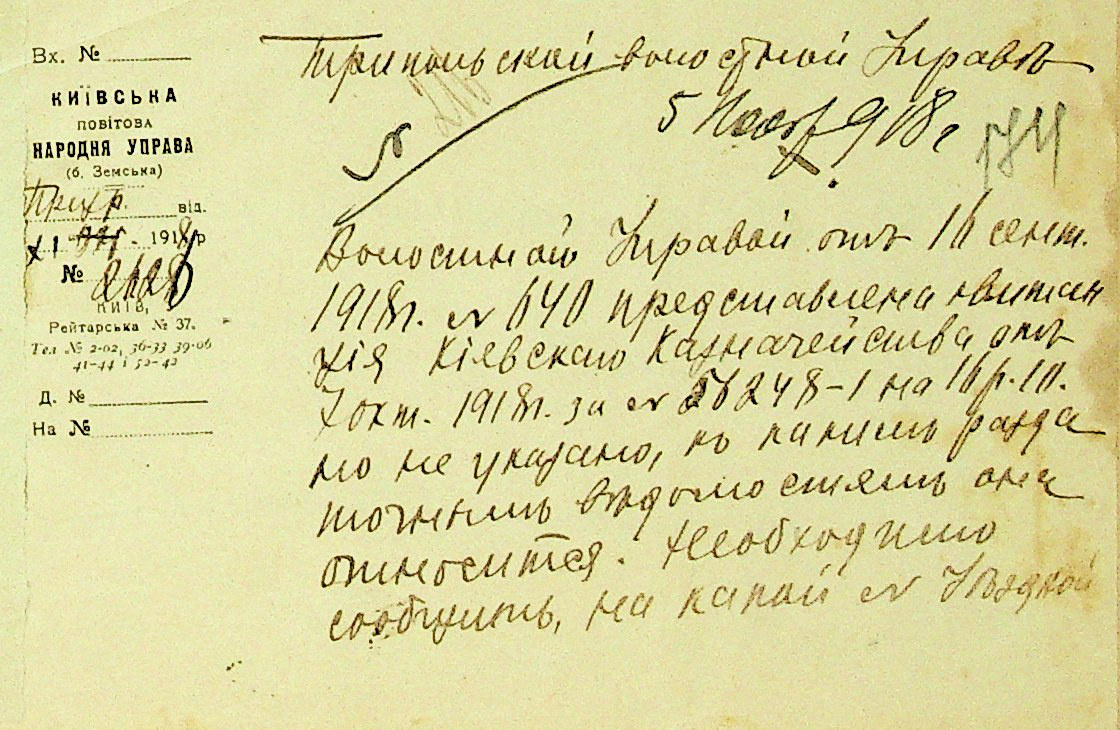 Вх. №
КИЇВСЬКА
ПОВІТОВА
НАРОДНЯ УПРАВА
(б. Земська)
від.
XI 1918 р
№ 2128
КИЇВ,
Рейтарська № 37.
Тел № 2-02, 36-33 39-06
41-44 і 52-42
Д. №
На №
Трипольской волостной Управѣ
5 Нояб 918 г
174
Волостной Управой отъ 16 сент.
1918г. № 640 представлена квитан
ція Кіевскаго Казначейства отъ
7 окт. 1918г. за № 248-1 на 16 р. 10.
но не указано, къ какимъ разда
точнымъ вѣдомостямъ она
относится. Необходимо
сообщить, на какой № Уѣздной